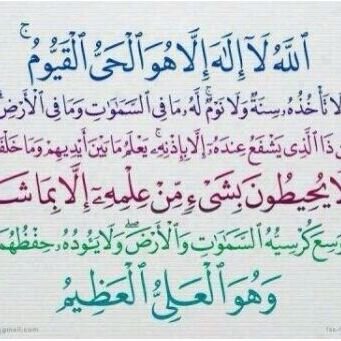 اللَّهُ لَآ إِلَٰهَ إِلَّا هُوَ الْحَيُّ الْقَيُّومُ ۚ
لَا تَأْخُذُهُۥ سِنَةٌ وَلَا نَوْمٌ ۚ لَّهُۥ مَا فِي السَّمَٰوَٰتِ وَمَا فِي الْأَرْضِ
ذَا الَّذِي يَشْفَعُ عِندَهُۥٓ إِلَّا بِإِذْنِهِۦ ۚ يَعْلَمُ مَا بَيْنَ أَيْدِيهِمْ وَمَا خَلْفَ
لَا يُحِيطُونَ بِشَيْءٍ مِّنْ عِلْمِهِۦٓ إِلَّا بِمَا شَا
وَسِعَ كُرْسِيُّهُ السَّمَٰوَٰتِ وَالْأَرْضَ ۖ وَلَا يَـُٔودُهُۥ حِفْظُهُمَ
وَهُوَ الْعَلِيُّ الْعَظِيمُ
@gmail.com